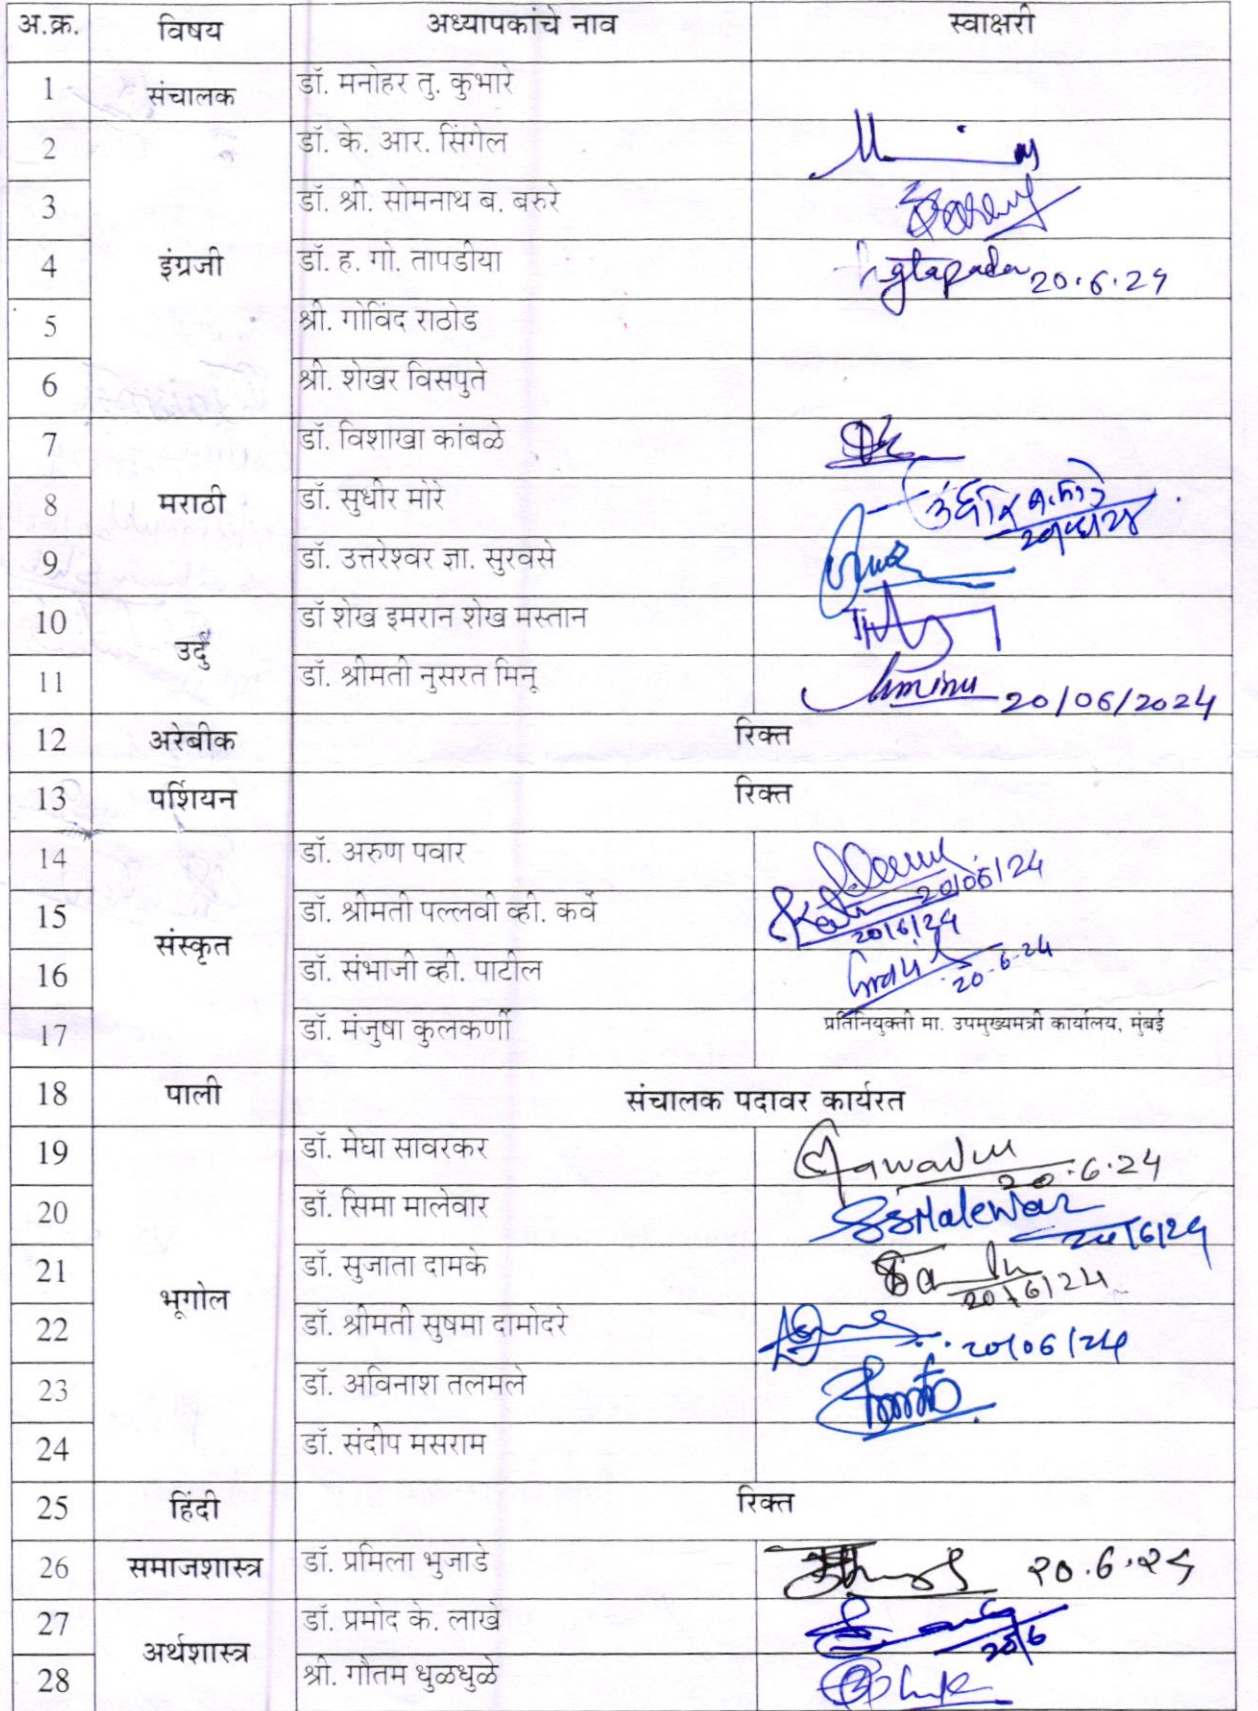 अ.क्र. विषय अध्यापकांचे नाव स्वाक्षरी
1 संचालक डॉ. मनोहर तु. कुभारे
2 डॉ. के. आर. सिंगेल
3 डॉ. श्री. सोमनाथ ब. बरुरे
4 इंग्रजी डॉ. ह. गो. तापडीया hgtapada 20.6.24
5 श्री. गोविंद राठोड
6 श्री. शेखर विसपुते
7 डॉ. विशाखा कांबळे
8 मराठी डॉ. सुधीर मोरे
9 डॉ. उत्तरेश्वर ज्ञा. सुरवसे
10 उर्दु डॉ शेख इमरान शेख मस्तान
11 डॉ. श्रीमती नुसरत मिनू 20/06/2024
12 अरेबीक रिक्त
13 पर्शियन रिक्त
14 डॉ. अरुण पवार 20/06/24
15 संस्कृत डॉ. श्रीमती पल्लवी व्ही. कर्वे 20/6/24
16 डॉ. संभाजी व्ही. पाटील 20.6.24
17 डॉ. मंजुषा कुलकर्णी प्रतिनियुक्ती मा. उपमुख्यमत्री कार्यालय, मुंबई
18 पाली संचालक पदावर कार्यरत
19 डॉ. मेघा सावरकर 20.6.24
20 डॉ. सिमा मालेवार SSMalewar 20/6/24
21 भूगोल डॉ. सुजाता दामके 20/6/24
22 डॉ. श्रीमती सुषमा दामोदरे 20/06/24
23 डॉ. अविनाश तलमले
24 डॉ. संदीप मसराम
25 हिंदी रिक्त
26 समाजशास्त्र डॉ. प्रमिला भुजाडे २०.6.२५
27 अर्थशास्त्र डॉ. प्रमोद के. लाखे 20/6
28 श्री. गौतम धुळधुळे